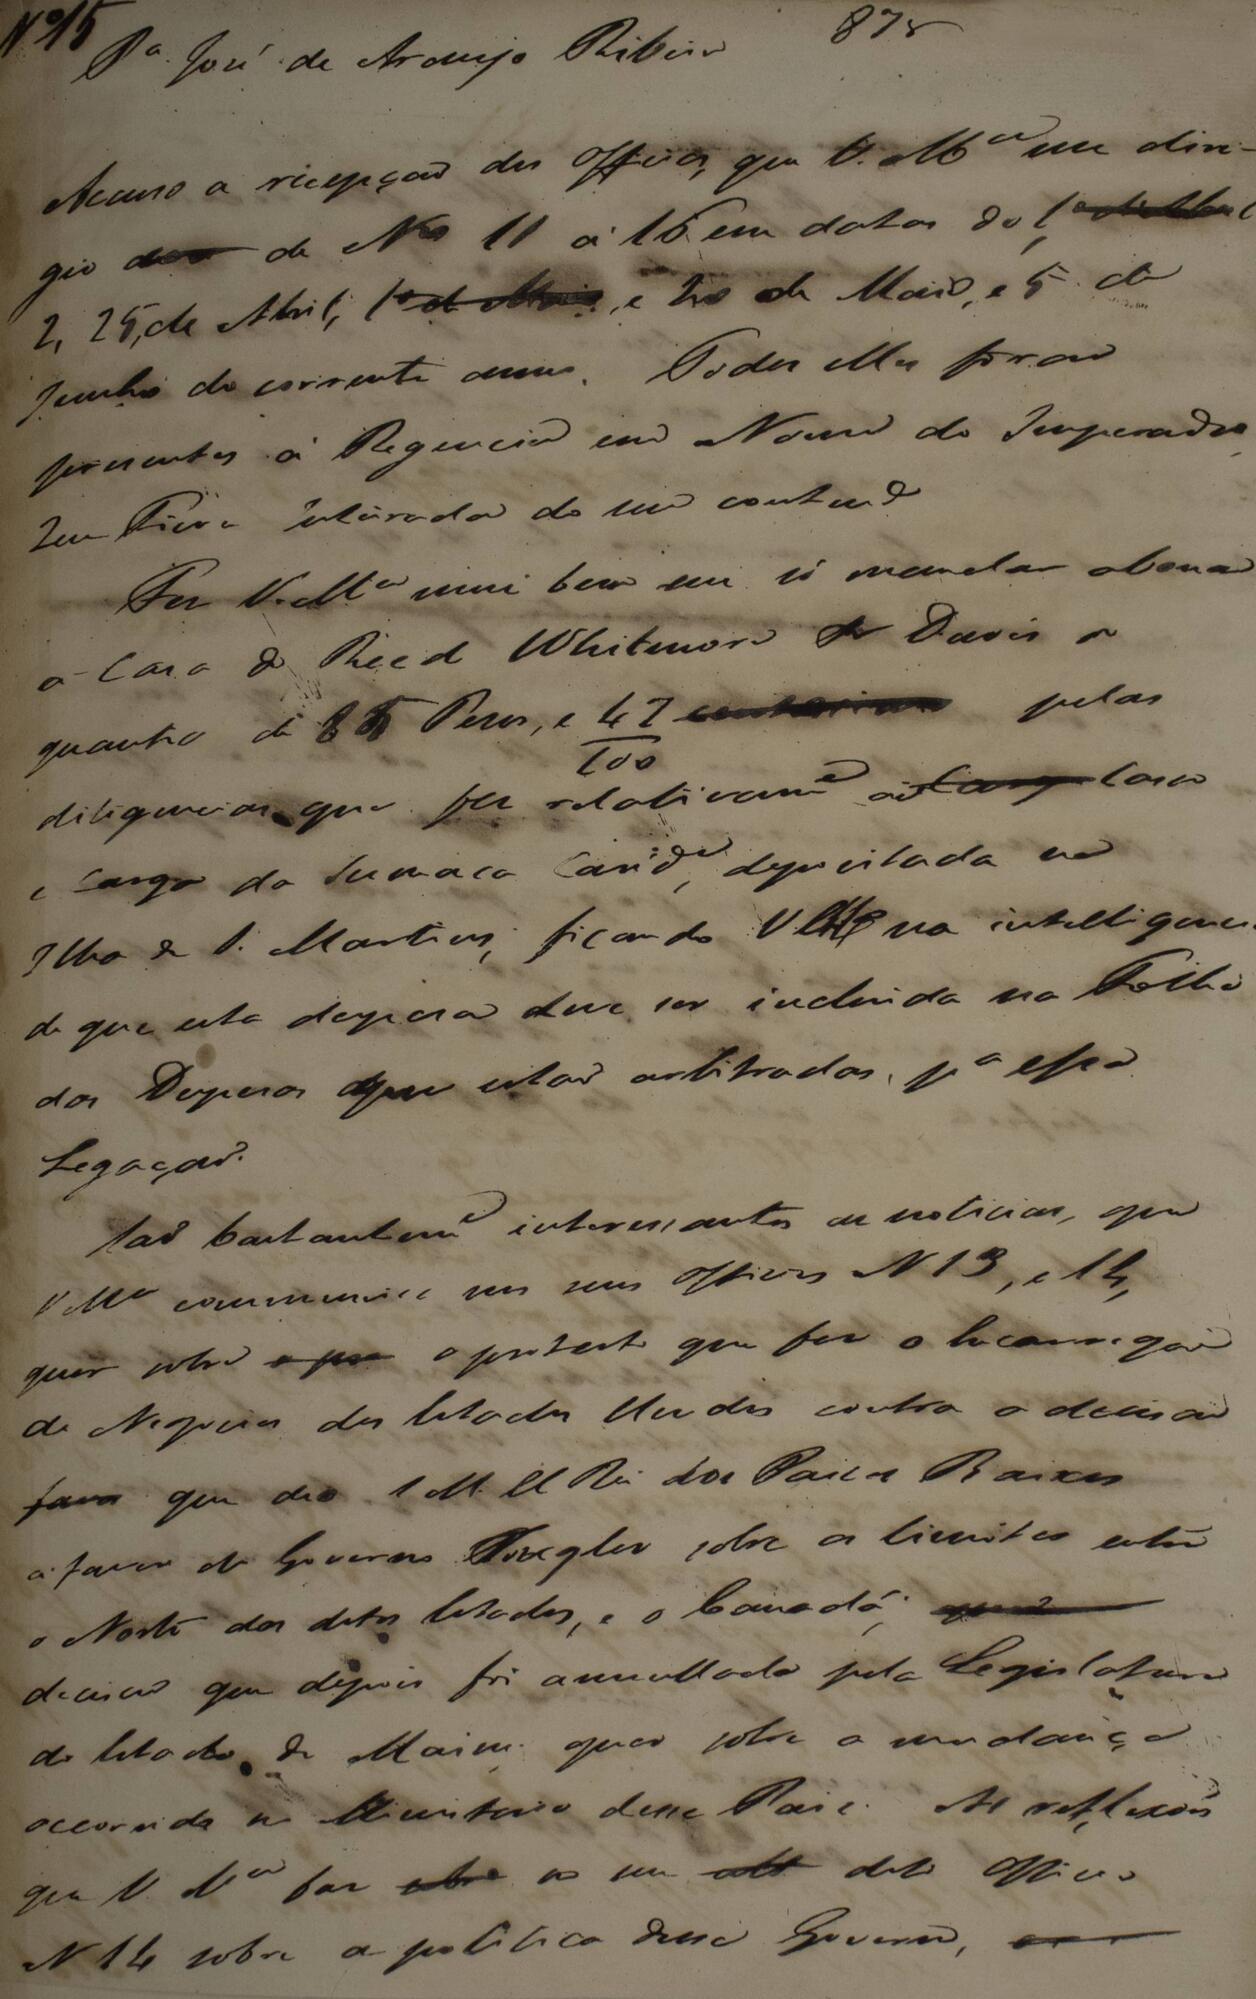 Nº 15
Pª José de Araujo Ribeiro 875
Accuso a recepçaõ dos Officios, que V. Mce me diri-
gio de Nos 11 a 16 em datas do 1º
2, 25, de Abril, 1º, e 20 de Maio, e 5 de
Junho do corrente anno. Todos elles foraõ
presentes á Regencia em Nome do Imperador,
que ficou inteirada do seu contendo
Fez V. Mce mui bem em só mandar abonar
á Casa de Reed Whitmore & Davis a
quantia de 85 Pesos, e 47/100 pelas
diligencias que fez relativamte ao casco
e Carga da Sumaca Caride, depositada na
Ilha de S. Martin, ficando V Mce na intelligencia
de que esta despesa deve ser incluida na Folha
das Despesas que estaõ arbitradas pª essa
Legaçaõ.
Saõ bastantemte interessantes as noticias, que
V Mce communica nos seus Officios N 13, e 14,
quer sobre o protesto que fez o Encarregado
de Negocios dos Estados Unidos contra a decisaõ
que deo S. M. El Rei dos Paises Baixos
a favor do Governo Inglez sobre os limites entre
o Norte dos ditos Estados, e o Canadá;
decisaõ que depois foi annullada pela Legislatura
do Estado de Maine; quer sobre a mudança
occorrida no Ministerio desse Paiz. As reflexões
que V. Mce faz no seu dito Officio
N 14 sobre a politica desse Governo,